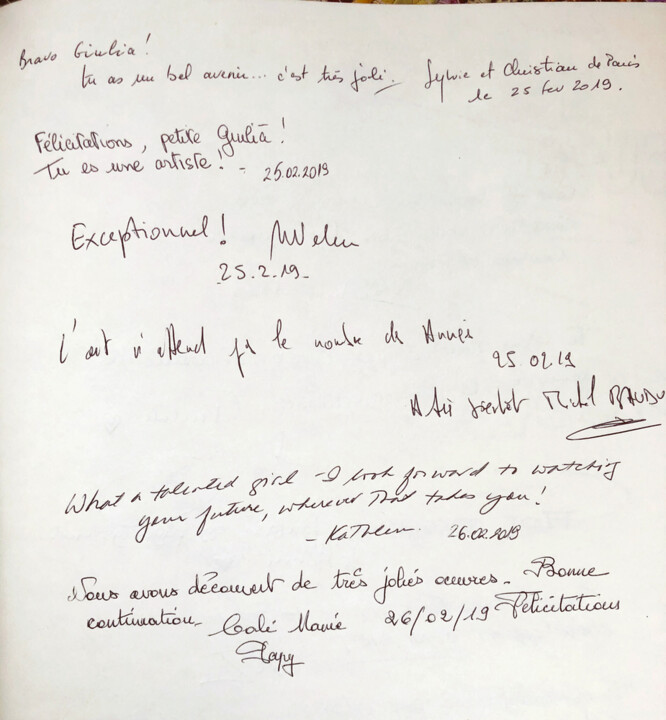 Bravo Giulia!
tu as un bel avenir... c'est très joli. Sylvie et Christian de Paris
le 25 fev 2019.
Félicitations, petite Giulia!
Tu es une artiste! - 25.02.2019
Exceptionnel!
25.2.19-
L'art n'attend pas le nombre de Années
25.02.19
A très bientôt Michel
What a talented girl - I look forward to watching
your future, wherever that takes you!
- Kathleen 26.02.2019
Nous avons découvert de très jolies œuvres - Bonne
continuation - 26/02/19 Félicitations
Marie